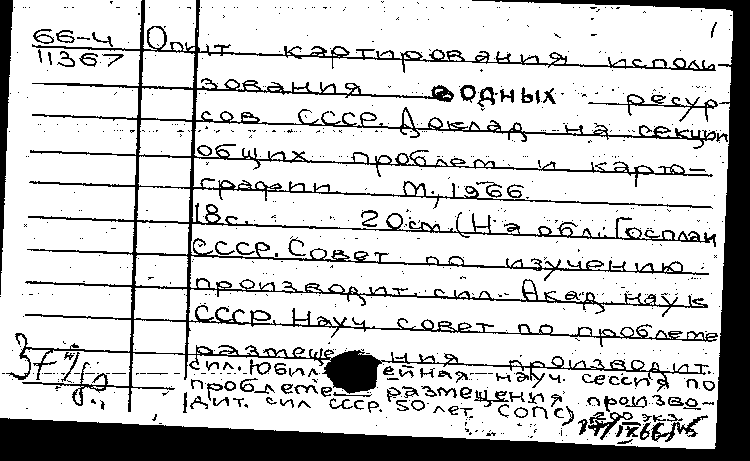 1
66-4
11367
Опыт картирования исполь-
зования водных ресур
сов СССР. Доклад на секции
общих проблем и карто-
графии М., 1966.
18с. 20см. (На обл.: Госплан
СССР. Совет по изучению
производит. сил. Акад. наук
СССР. Науч. совет по проблеме
размеще ния производит.
сил. Юбил ейная науч. сессия по
проблеме размещения произво-
дит. сил СССР. 50 лет СОПС)